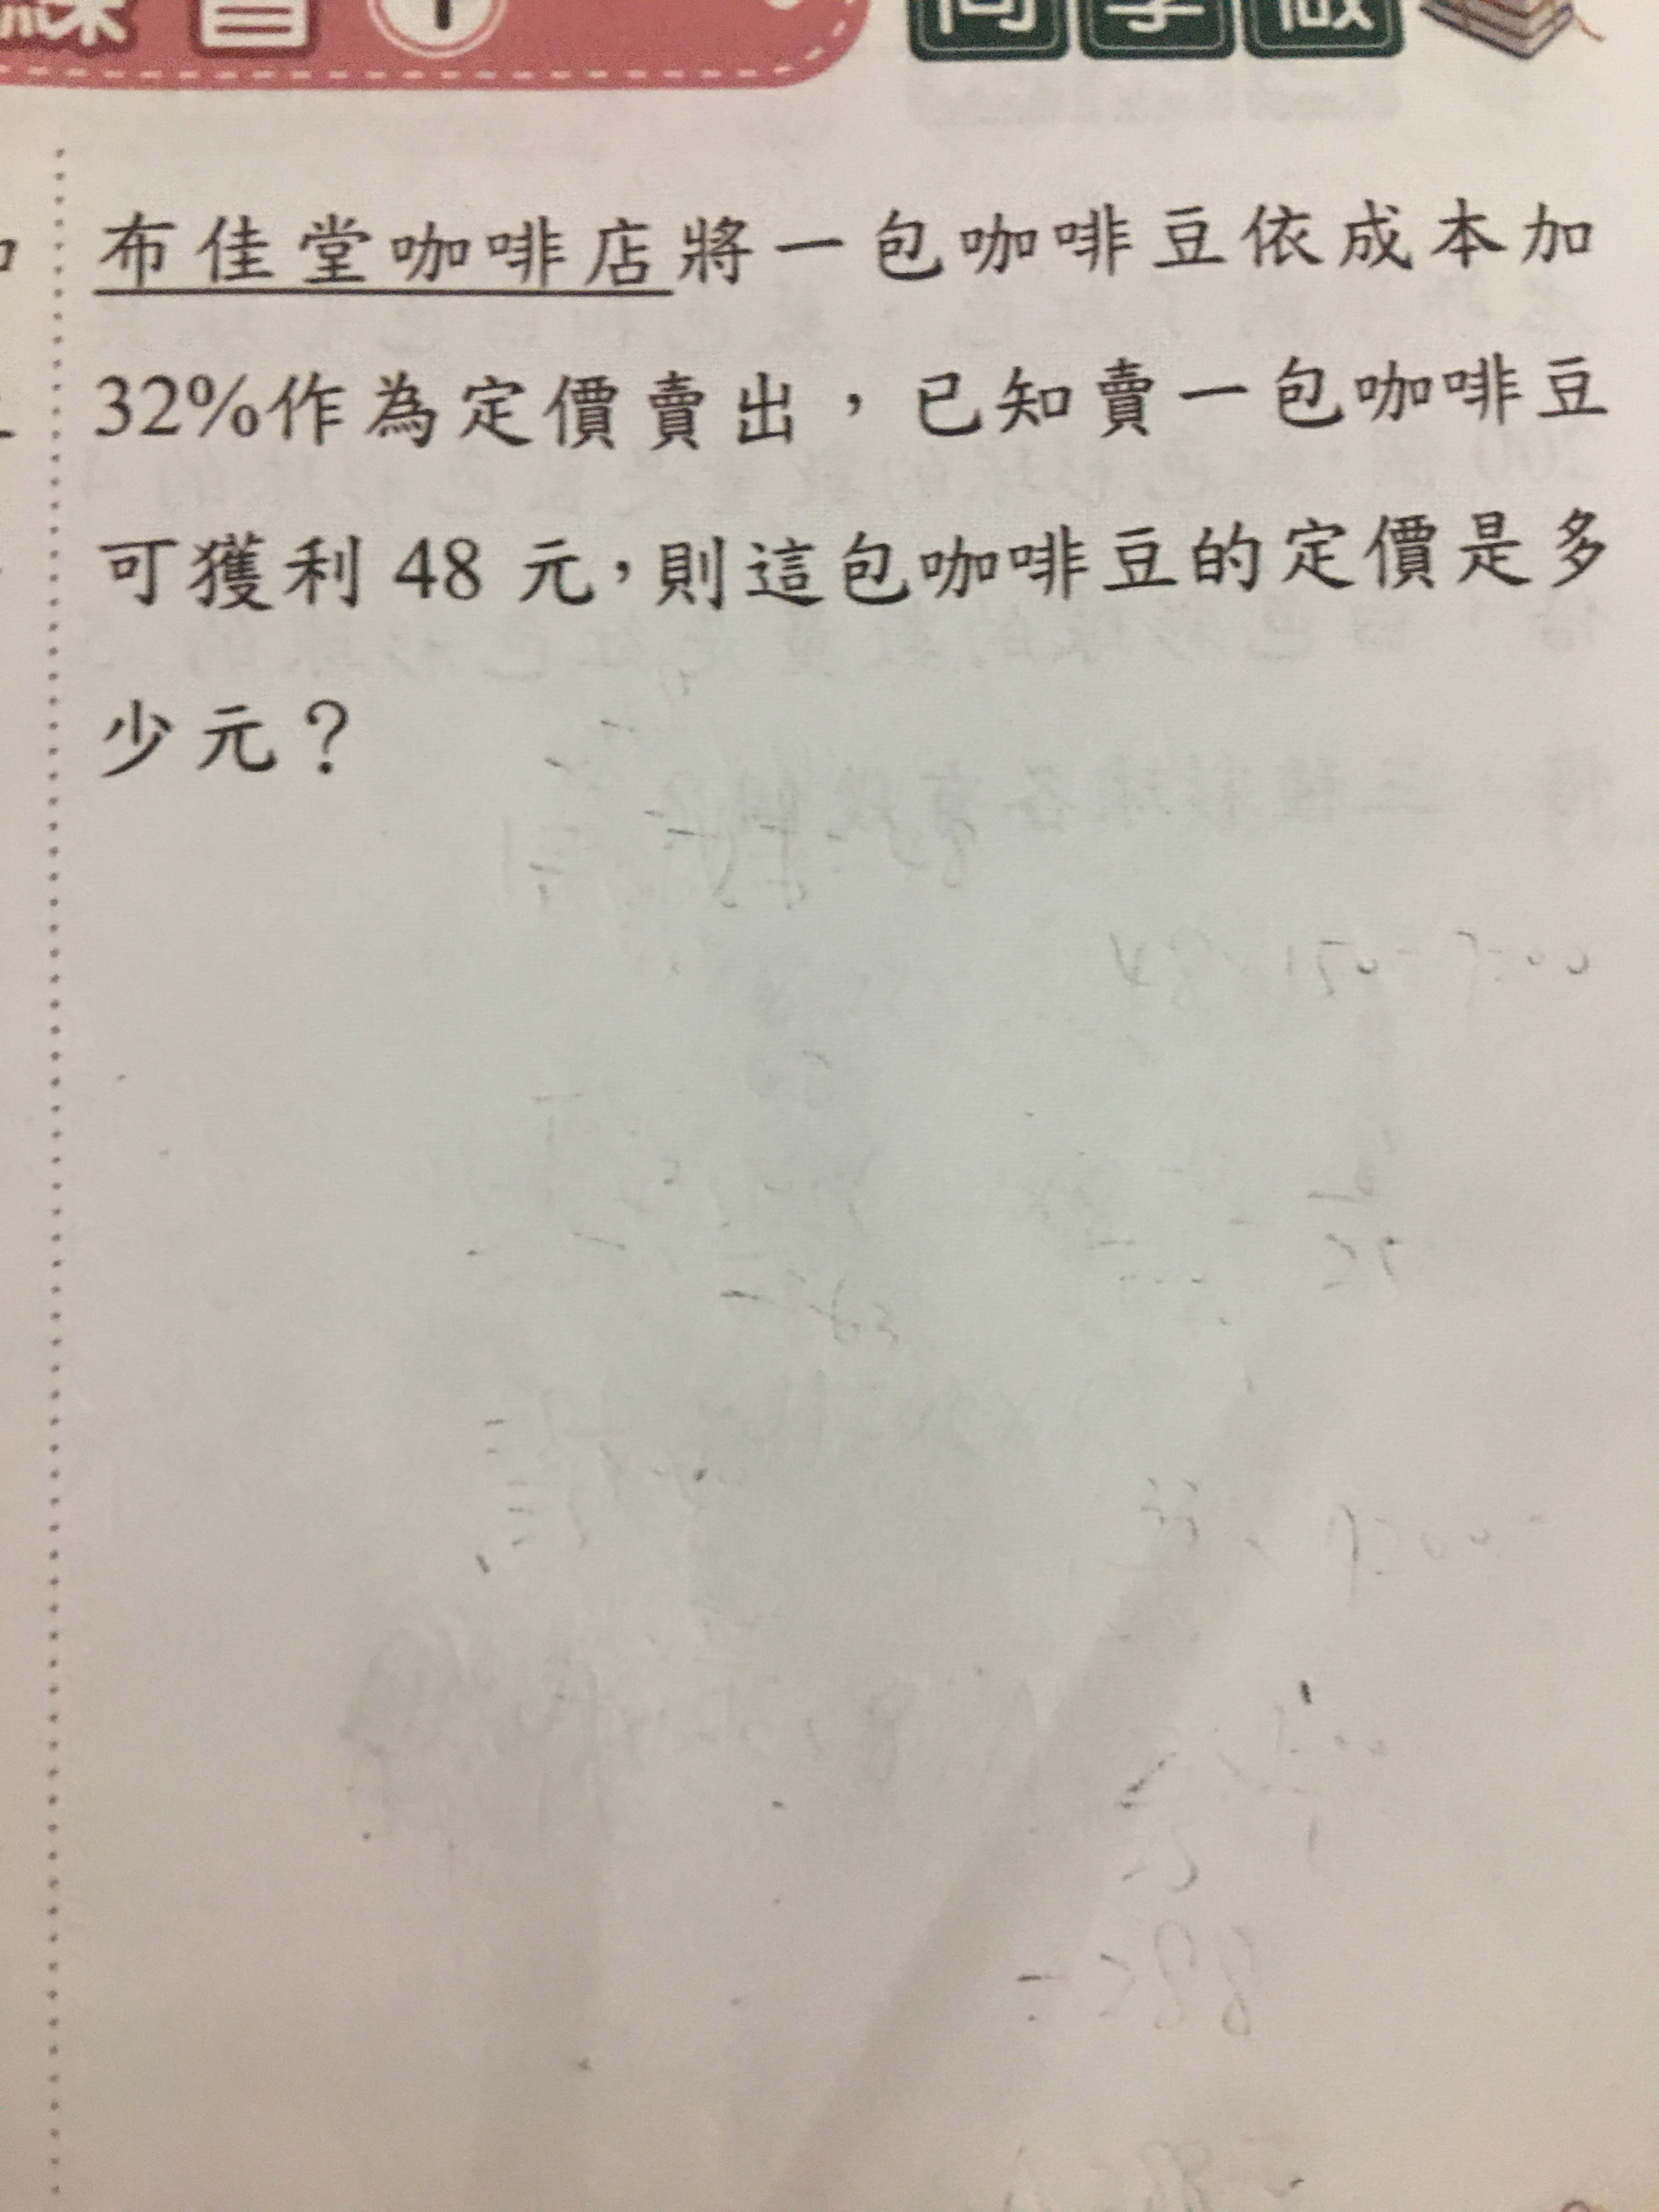 練習 1 同學做
布佳堂咖啡店將一包咖啡豆依成本加
32%作為定價賣出，已知賣一包咖啡豆
可獲利 48 元，則這包咖啡豆的定價是多
少元？